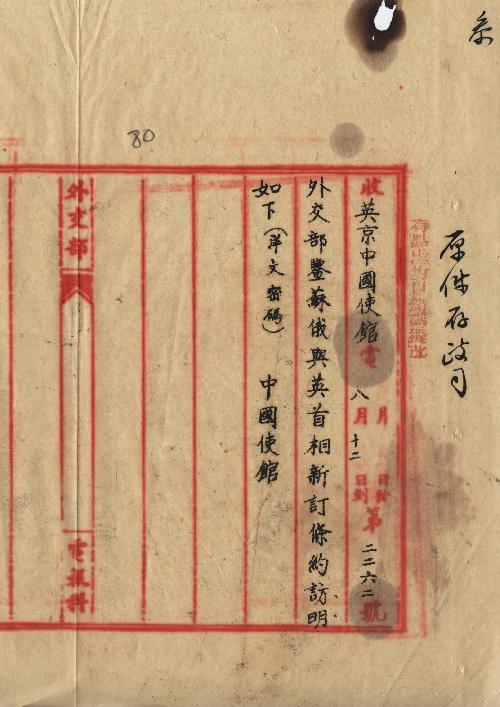 原件存政司
收英京中國使館電 月 日發
八月十二日到 第二二六二號
外交部鑒蘇俄與英首相新訂條約訪明
如下(洋文密碼) 中國使館
外交部 電報科
80